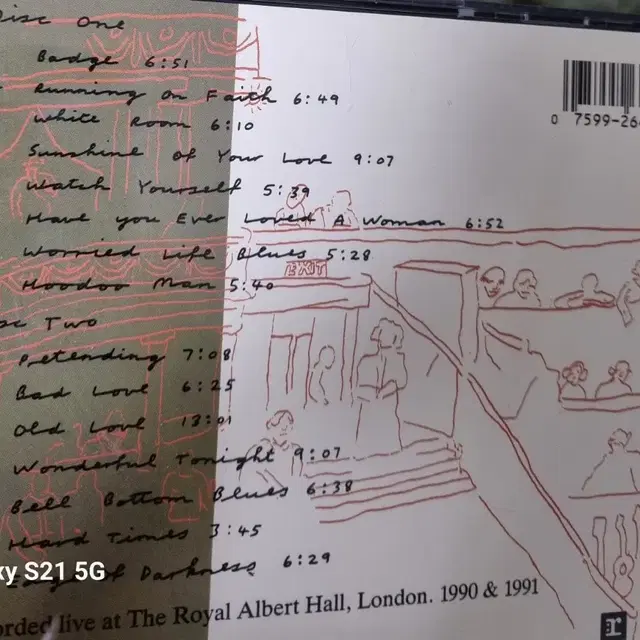 Disc One
Badge 6:51
Running On Faith 6:49
White Room 6:10
Sunshine Of Your Love 9:07
Watch Yourself 5:39
Have you Ever Loved A Woman 6:52
Worried Life Blues 5:28
Hoodoo Man 5:40
EXIT
sc Two
Pretending 7:08
Bad Love 6:25
Old Love 13:01
Wonderful Tonight 9:07
Bell Bottom Blues 6:38
Hard Times 3:45
of Darkness 6:29
xy S21 5G
orded live at The Royal Albert Hall, London. 1990 & 1991
0 7599-26
r